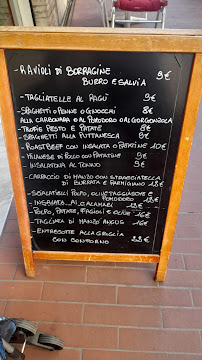 - RAVIOLI DI BORRAGINE 9€
BURRO E SALVIA
- TAGLIATELLE AL RAGÙ 9€
- SPAGHETTI O PENNE O GNOCCHI 8€
ALLA CARBONARA O AL POMODORO O AL GORGONZOLA
- TROFIE PESTO E PATATE 8€
- SPAGHETTI ALLA PUTTANESCA 9€
- ROASTBEEF CON INSALATA O PATATINE 10€
- MILANESE DI POLLO CON PATATINE 9€
- INSALATONA AL TONNO 9€
- CARPACCIO DI MANZO CON STRACCIATELLA
DI BURRATA E PARMIGIANO 13€
- SCIALATIELLI POLPO, OLIVE TAGGIASCHE E
POMODORO 12€
- INSALATA CALAMARI 13€
- POLPO, PATATE, FAGIOLI E OLIVE 16€
- TAGLIATA DI MANZO ANGUS 16€
- ENTRECOTE ALLA GRIGLIA
CON CONTORNO 22€